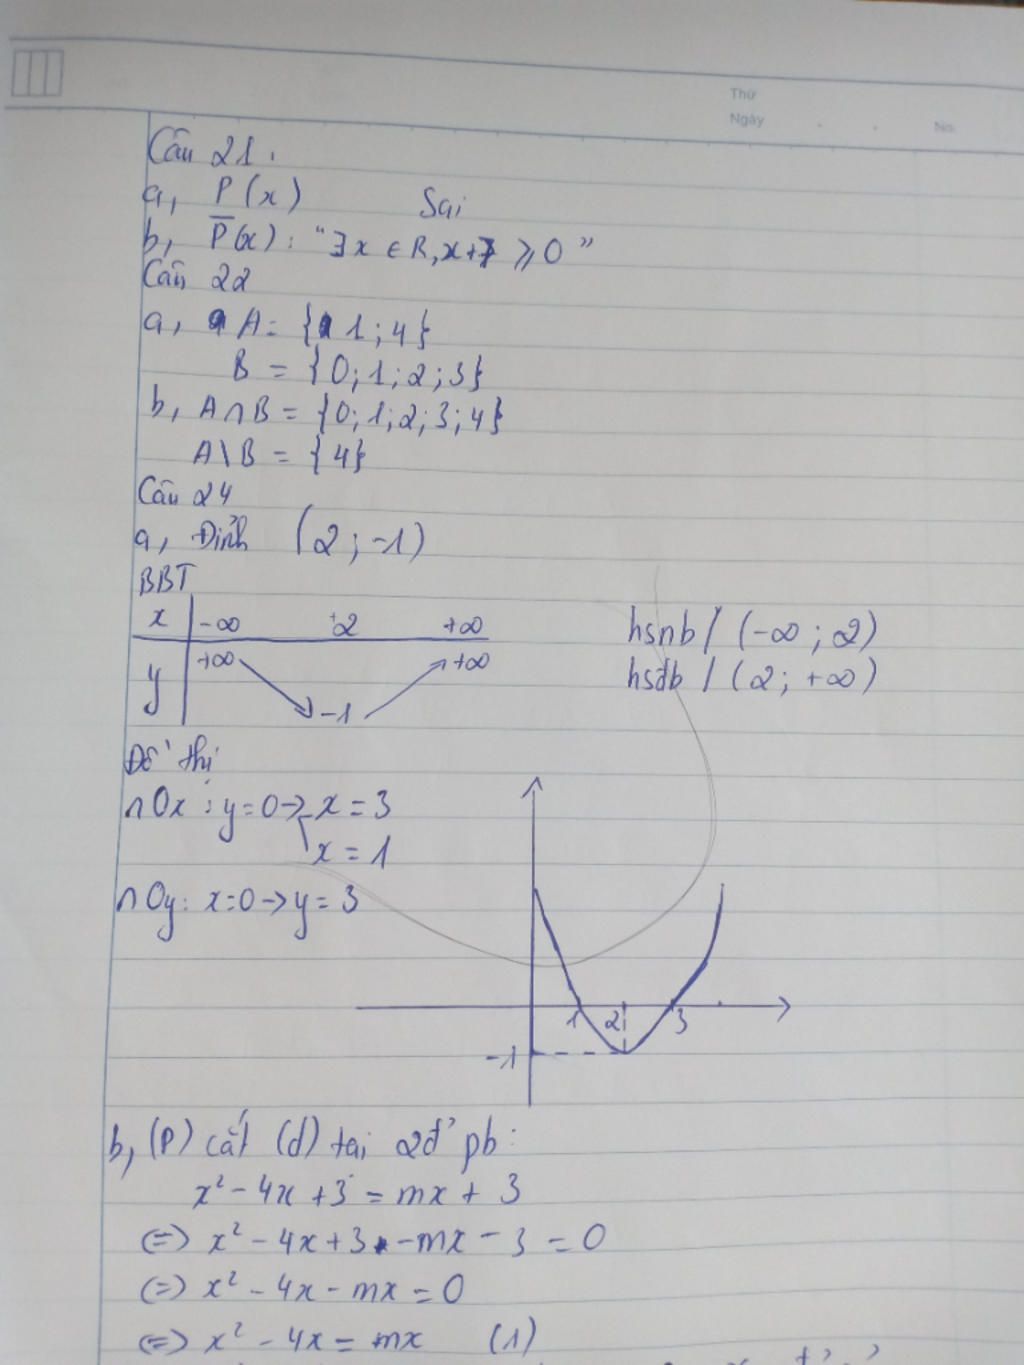 Thứ
Ngày
No.
Câu 21.
a, P(x) Sai
b, P̅(x): "∃x ∈ R, x+7 ⩾ 0"
Câu 22
a, A = {1; 4}
B = {0; 1; 2; 3}
b, A∩B = {0; 1; 2; 3; 4}
A\B = {4}
Câu 24
a, Đỉnh (2; -1)
BBT
x -∞ +2 +∞
y +∞ -1 +∞
hsnb / (-∞; 2)
hsđb / (2; +∞)
Đồ thị
∩Ox: y=0 → x = 3
x = 1
∩Oy: x=0 → y = 3
1 2 3
-1
b, (P) cắt (d) tại 2đ' pb:
x² - 4x + 3 = mx + 3
(=) x² - 4x + 3 - mx - 3 = 0
(=) x² - 4x - mx = 0
(=) x² - 4x = mx (1)